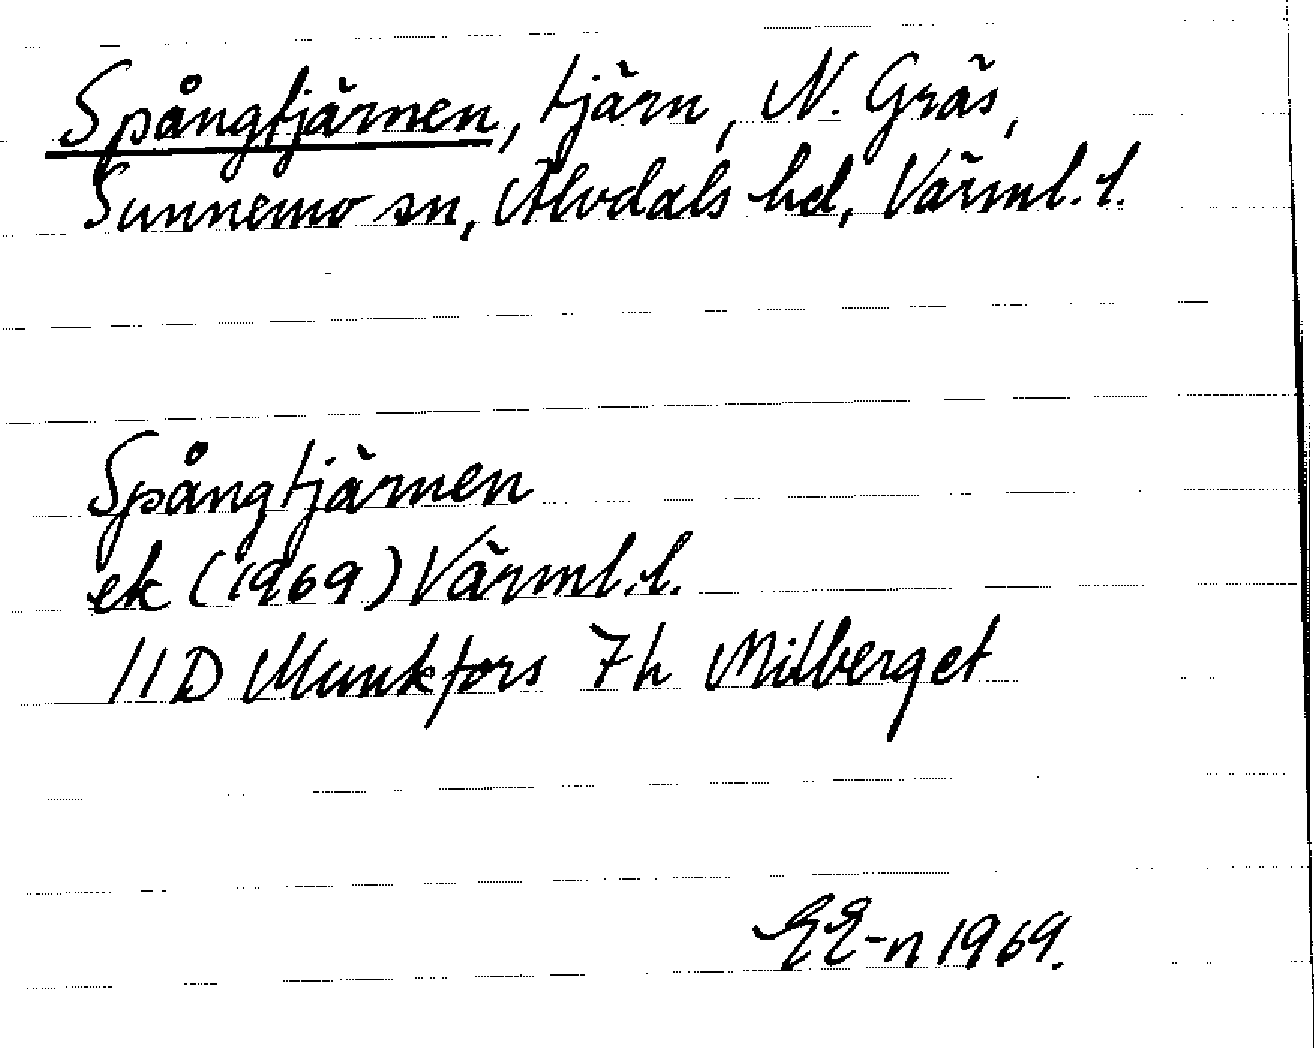 Spångtjärnen, tjärn, N. Gräs,
Sunnemo sn, Älvdals hd, Värml. l.
Spångtjärnen
ek (1969) Värml. l.
11D Munkfors 7h Milberget
EE-n 1969.